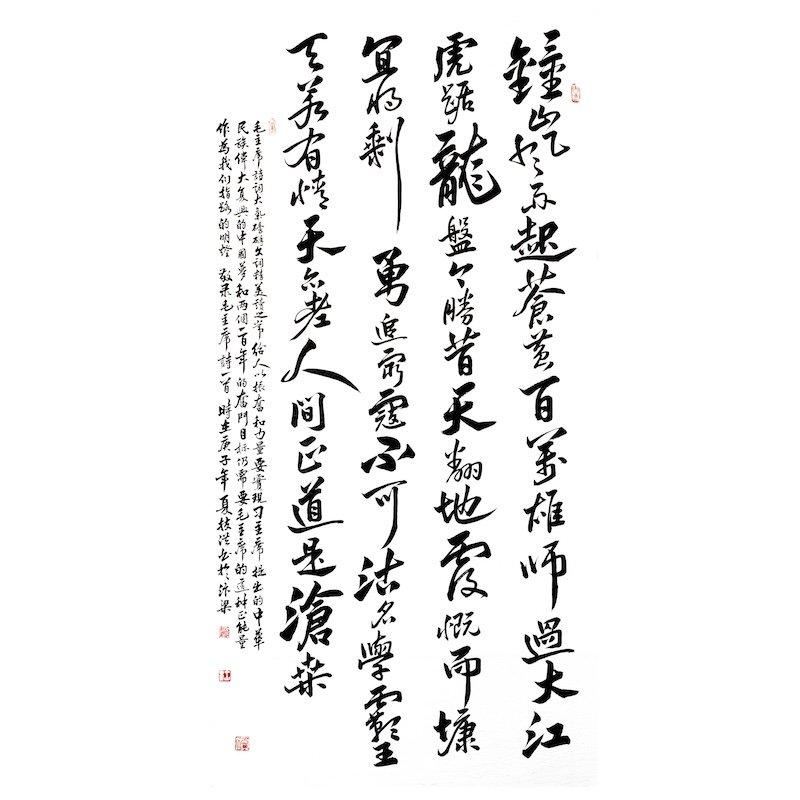 鐘山风雨起蒼黄百萬雄師過大江
虎踞龍盤今勝昔天翻地覆慨而慷
宜将剩勇追窮寇不可沽名學霸王
天若有情天亦老人間正道是滄桑
毛主席詩詞大氣磅礴文詞精美讀之常給人以振奮和力量要實現习主席提出的中華
民族偉大复興的中國梦和两個一百年的奮鬥目标仍需要毛主席的這种正能量
作為我们指路的明燈 敬录毛主席詩一首 時在庚子年夏书於汴梁